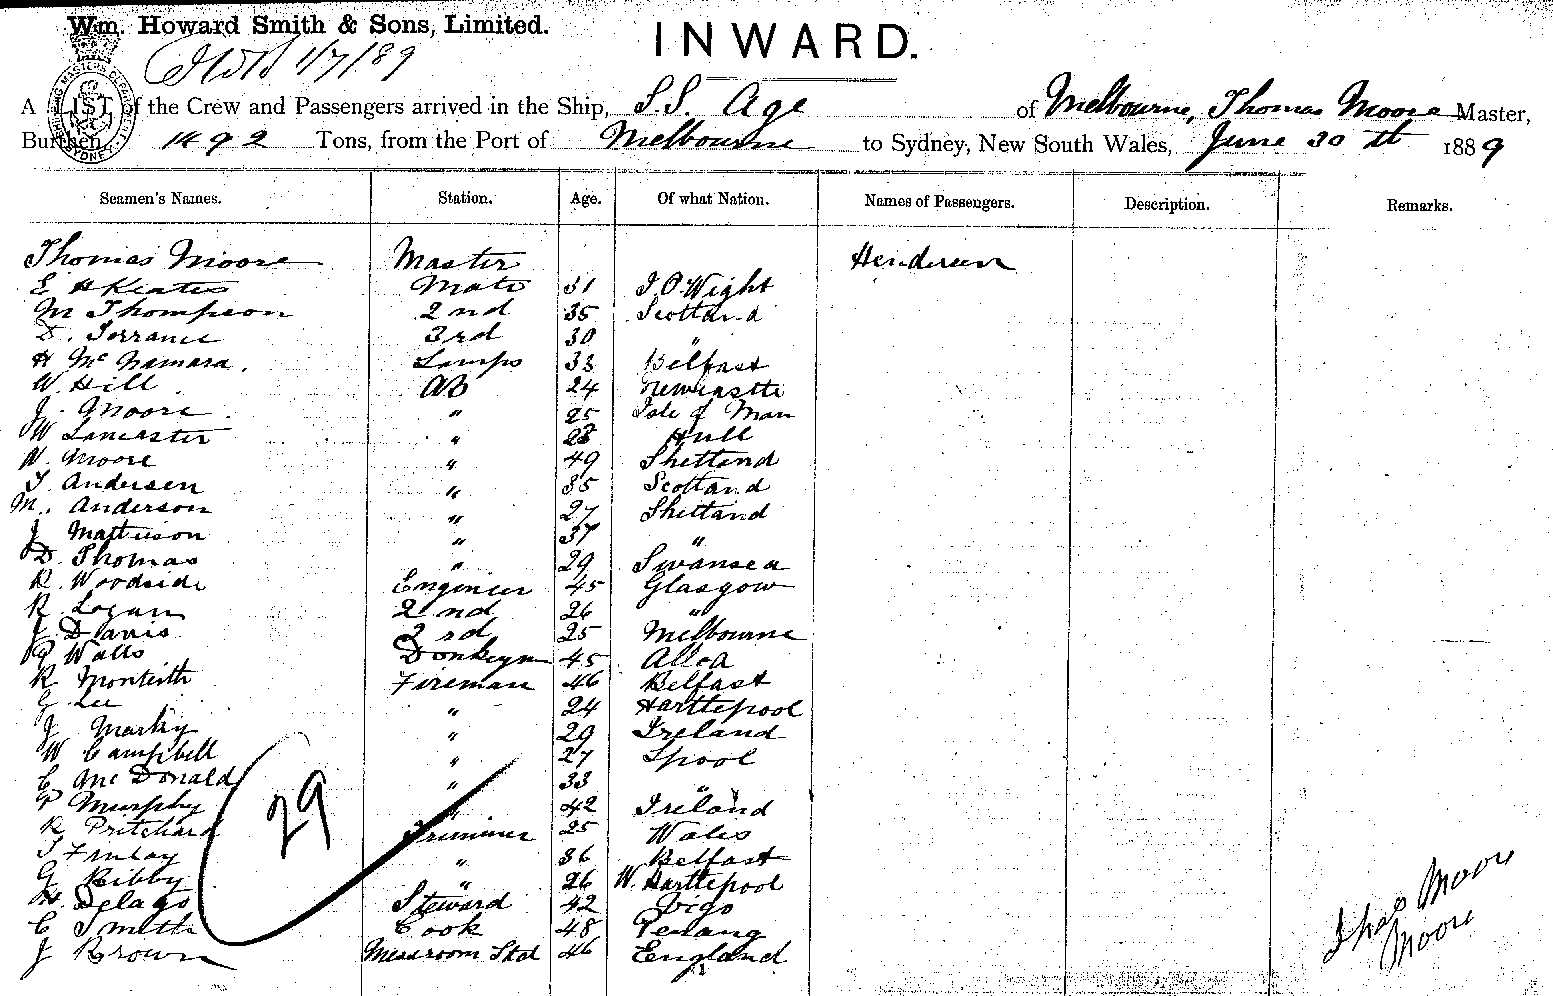 Wm. Howard Smith & Sons, Limited.
INWARD.
1/7/89
A LIST of the Crew and Passengers arrived in the Ship, S.S. Age of Melbourne, Thomas Moore Master,
Burthen 1492 Tons, from the Port of Melbourne to Sydney, New South Wales, June 30th 1889
Seamen's Names. Station. Age. Of what Nation. Names of Passengers. Description. Remarks.
Thomas Moore Master Henderson
E H Keates Mate 31 I.O.Wight
M Thompson 2nd 35 Scotland
D. Torrance 3rd 30 "
H McNamara. Lamps 33 Belfast
W Hill AB 24 Newcastle
J. Moore " 25 Isle of Man
W Lancaster " Hull
W. Moore " 49 Shetland
T. Andersen " 35 Scotland
M. Anderson " 27 Shetland
J Mattieson " 37 "
D. Thomas " 29 Swansea
R. Woodside Engineer 45 Glasgow
R. Logan 2nd 26 "
J Davis 3rd 25 Melbourne
P Walls Donkeyn 45 Alloa
R Monteith Fireman 46 Belfast
G Lee " 24 Hartlepool
J Marky " 29 Ireland
W Campbell " 27 Lpool
C McDonald " 33 "
P Murphy " 42 Ireland
R Pritchard Trimmer 25 Wales
T Finlay " 36 Belfast
G Ribby " 26 W. Hartlepool
H. Delago Steward 42 Vigo
C Smith Cook 48 Penang
J Brown Messroom Std 46 England
29
Thos Moore
Moore